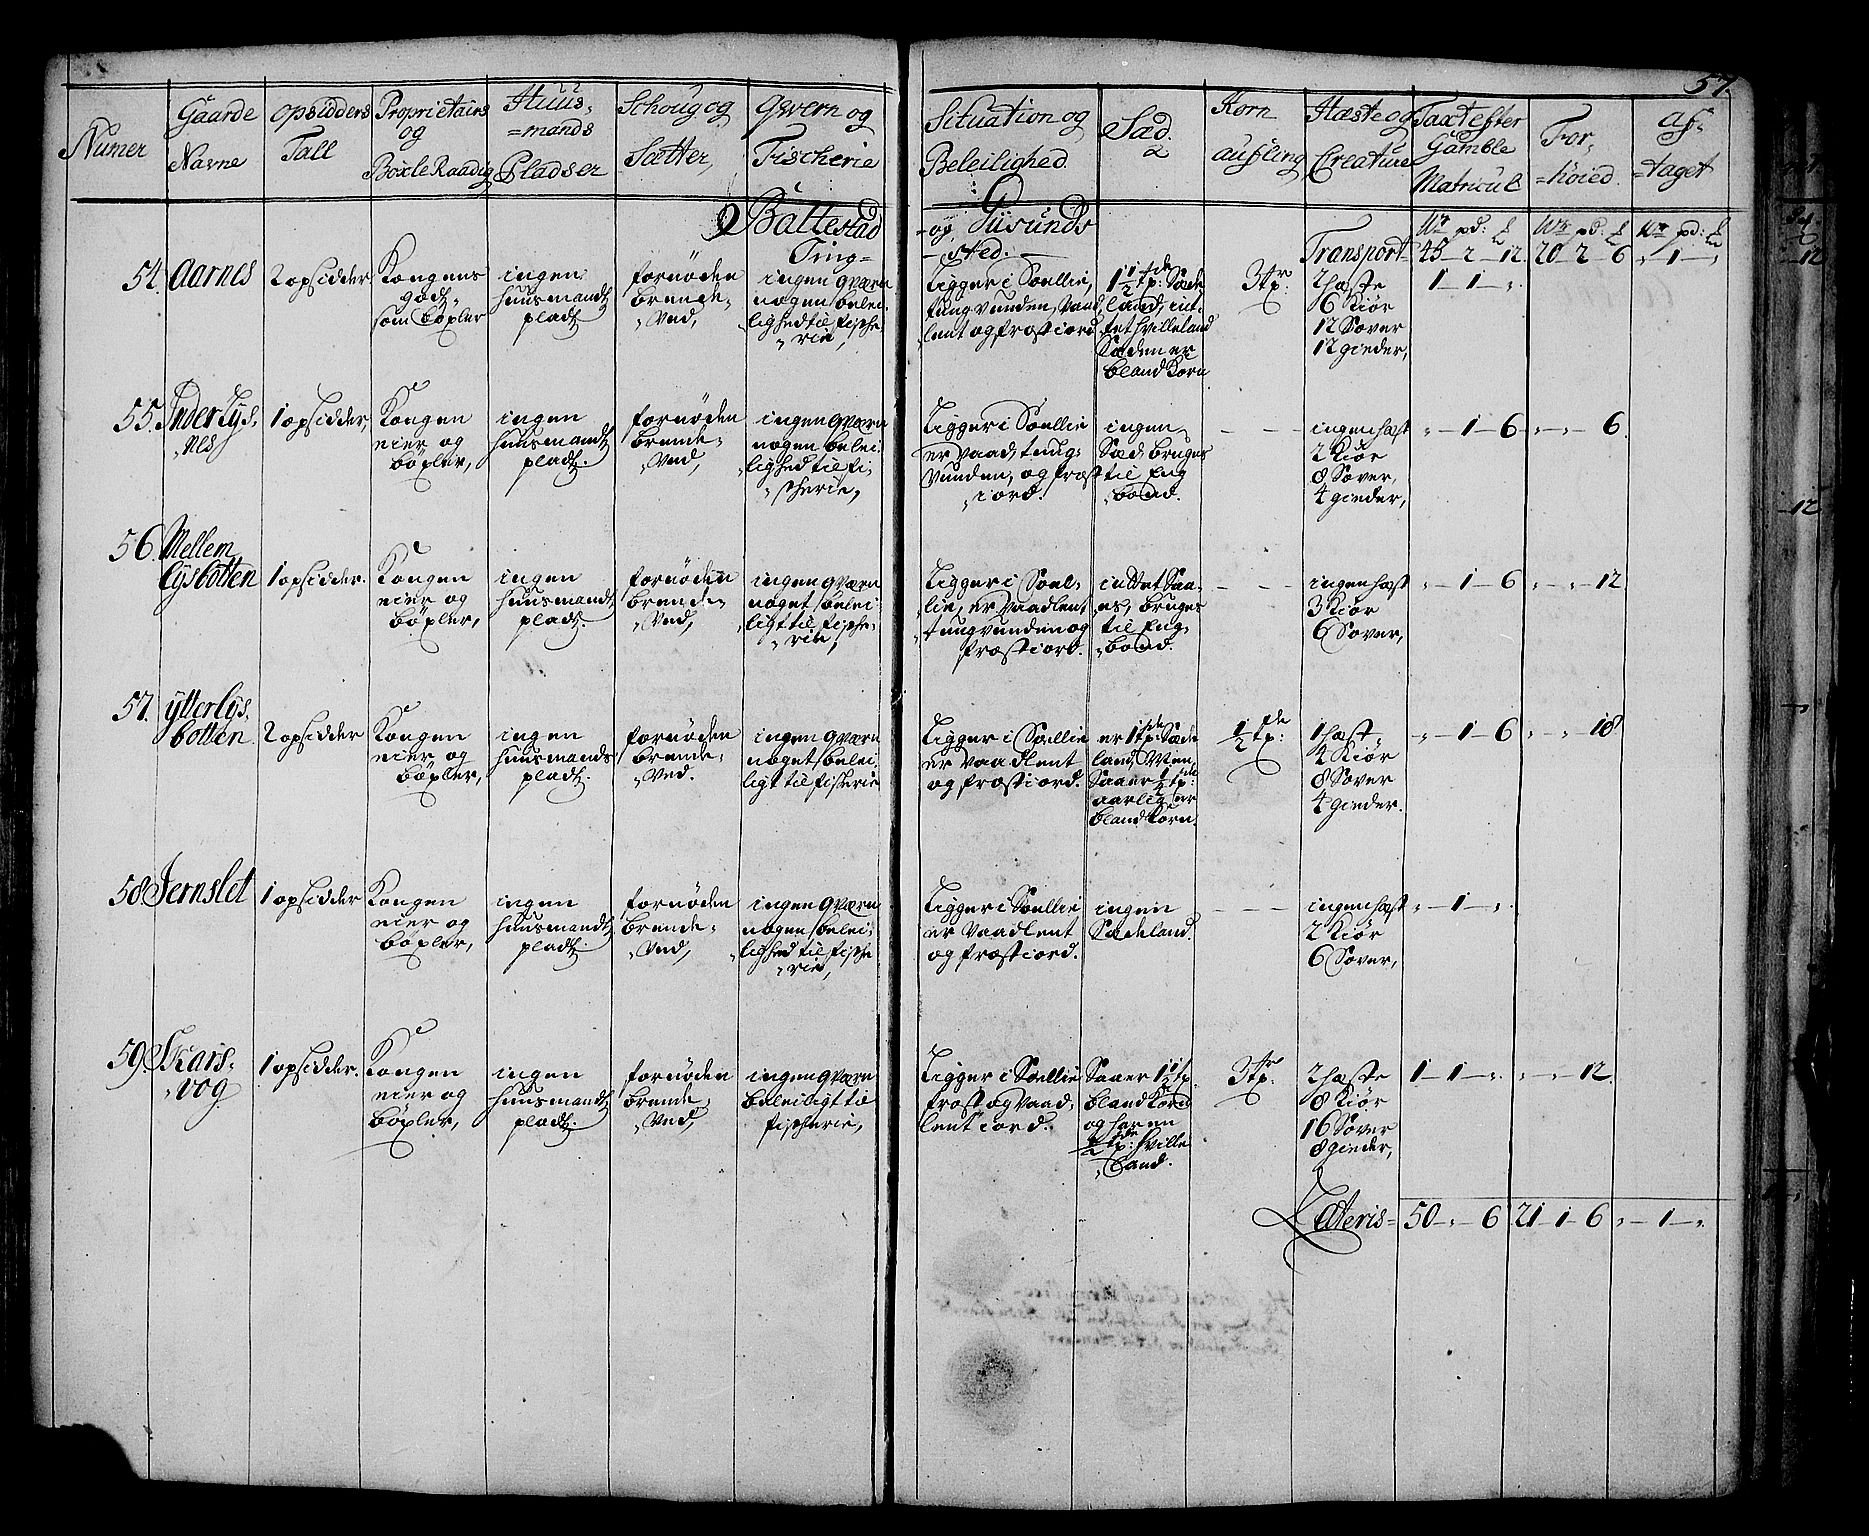 57.
Numer
Gaarde Navne
Opsidders Tall
Proprietairs og Böxle Raadig
Huus-mands Pladser
Schoug og Sætter,
Qvern og Fischerie
Situation og Beleilighed
Sæd
Korn aufling
Hæste og Creature
Taxt efter Gamble Matricul
For-høied
Af-taget
Ballestad Ting-
og Giisunds
-sted.
W pd: W pd: W pd:
Transport 45-2-12. 20-2-6 „-1-„
54. Aarnes
2 opsidder
Kongens
godz,
som böxler
ingen
huusmandz
pladz
fornøden
brende-
Ved,
ingen qværn
nogen belei
lighed til fische-
rie,
Ligger i Soellie,
tungvunden, Vaad,
lent og frost iord
1 1/2 tp: Sæde
land, int-
tet hvilleland
Sæden er
bland Korn
3 tr
tp:
2 hæste
6 Kiør
12 Sover
12 gieder,
1-1-„
55. Inderlys-
nes
1 opsidder,
Kongen
eier og
böxler,
ingen
huusmandz
pladz.
fornøden
brende-
Ved,
ingen qværn
nogen belei
lighed til fi-
scherie,
Ligger i Soellie
er Vaad tung-
vunden, og frost
iord.
ingen
Sæd, bruges
til Eng
bond.
- - -
ingen hæst
2 Kiør
8 Sover,
4 gieder,
„-1-6 „-„-6.
56. Mellem
Lysbotten
1 opsidder.
Kongen
eier og
böxler,
ingen
huusmandz
pladz.
fornøden
brende-
Ved,
ingen qværn
noget belei
ligt til fische-
rie,
Ligger i Soel-
lie, er Vaadlent
tungvunden og
frost iord.
inttet Saa-
es, bruges
til Eng-
bond.
- - -
ingen hæst
3 Kiør
6 Sover,
„-1-6 „-„-12
57. Ytterlys-
botten
2 opsidder
Kongen
eier og
böxler,
ingen
huusmands
pladz.
fornøden
brende-
Ved.
ingen qværn
noget belei
ligt til fischerie
Ligger i Soellie
er Vaadlent
og frost iord.
er 1 tp: Sæde
land, Men
Saaer 1/2 tp:
aarlig, er
bland Korn.
1/2 tp:
1 hæst,
4 Kiør
8 Sover
4 gieder.
„-1-6 „-„-18
58. Jernslet
1 opsidder
Kongen
eier og
böxler,
ingen
huusmandz
pladz.
fornøden
brende-
Ved,
ingen qværn
nogen belei
lighed til fische
rie,
Ligger i Soellie
er Vaadlent
og frost iord.
ingen
Sædeland.
- - -
ingen hæst
2 Kiør
6 Sover,
„-1-„.
59. Skars-
vog
1 opsidder.
Kongen
eier og
böxler,
ingen
huusmandz
pladz.
fornøden
brende-
Ved,
ingen qværn
beleiligt til
fischerie,
Ligger i Soellie
frost og Vaad,
lent iord.
Saaer 1 1/2 tp.
bland Korn
og har en
1/2 tp: hville
Land.
3 tr
tp:
2 hæste
8 Kiør
16 Sover
8 gieder,
1-1-„. „-„-12.
Lateris- 50-„-6 21-1-6 „-1-„.